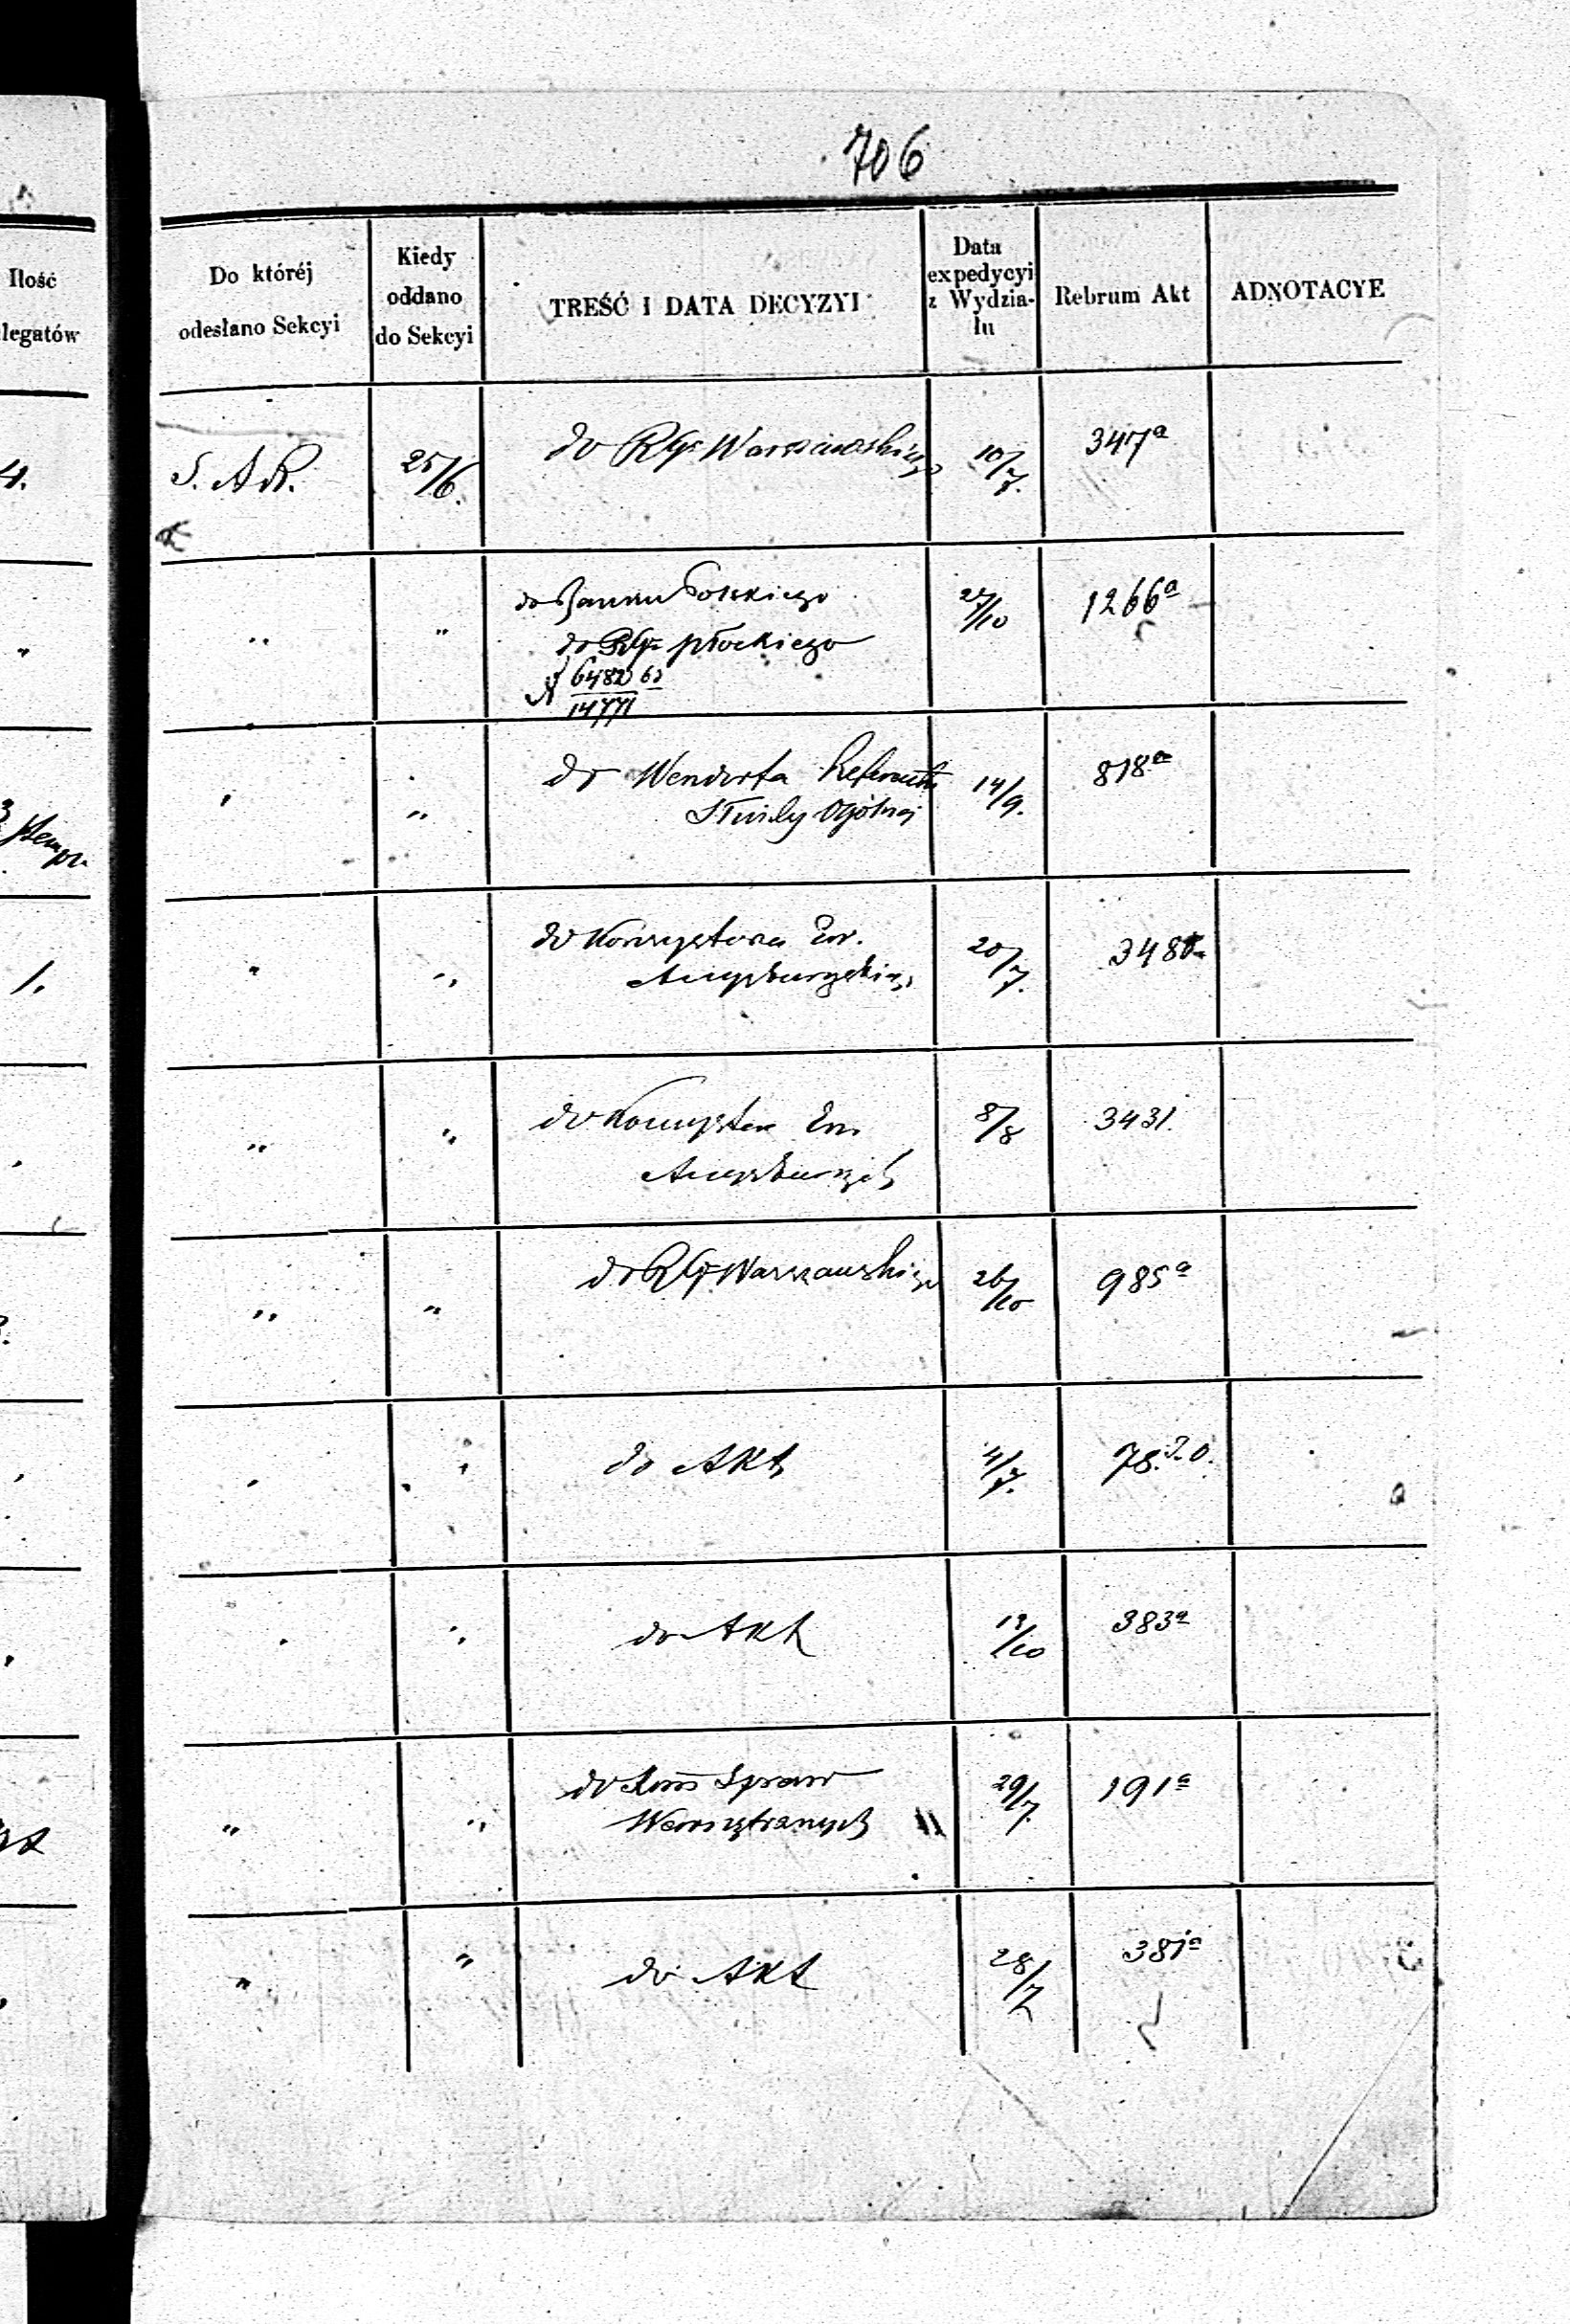 706
Ilość
legatów
Do któréj
odesłano Sekcyi
Kiedy
oddano
do Sekcyi
TREŚĆ I DATA DECYZYI
Data
expedycyi
z Wydzia-
łu
Rebrum Akt
ADNOTACYE
4. S. A R. 25/6. do RGr Warszawskiego 10/7. 347a
" " " do Banku Polskiego 27/10 1266a
do RGr płockiego
N 6482 63
14771
" " do Wendorfa Referenta 14/9. 818a
Służby Ogólnej
3
stempr.
1. " " do Konsystorza Ew. 20/7. 348a
Augsburgskiego
" " do Konsystor Ew 8/8 3431.
Augsburgsk
" " do RGr Warszawskiego 26/10 985a
" " do Akt 4/7. 78.
" " do Akt 19/10 383a
" " do Kom Spraw 29/7. 191a
Wewnętrznych
" " do Akt 28/7 381a